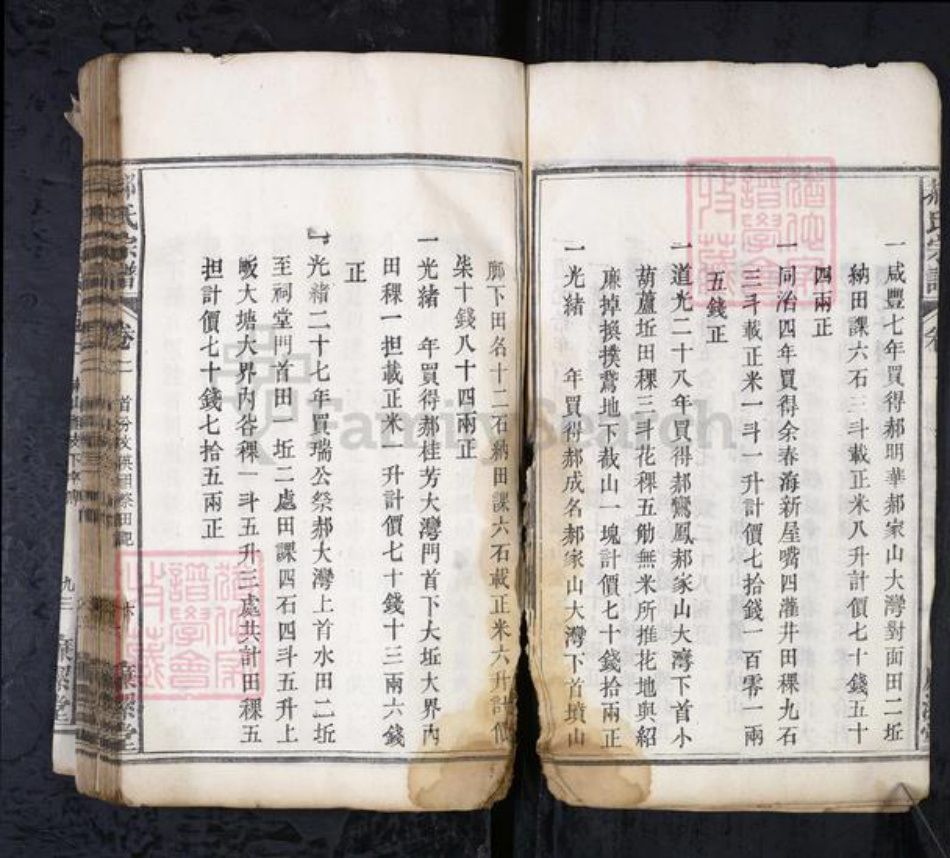 一咸豐七年買得郝明華郝家山大灣對面田二坵
納田課六石三斗載正米八升計價七十錢五十
四兩正
一同治四年買得余春海新屋嘴四灘井田稞九石
三斗載正米一斗一升計價七拾錢一百零一兩
五錢正
一道光二十八年買得郝鸞鳳郝家山大灣下首小
葫蘆坵田稞三斗花稞五觔無米所推花地與紹
廉掉換撲鵞地下截山一塊計價七十錢拾兩正
一光緒 年買得郝成名郝家山大灣下首墳山
廊下田名十二石納田課六石載正米六升計價
柒十錢八十四兩正
一光緒 年買得郝桂芳大灣門首下大坵大界內
田稞一担載正米一升計價七十錢十三兩六錢
正
一光緒二十七年買瑞公祭郝大灣上首水田二坵
至祠堂門首田一坵二處田課四石四斗五升上
畈大塘大界內谷稞一斗五升三處共計田稞五
担計價七十錢七拾五兩正
郝氏宗譜 卷二 首分
FamilySearch